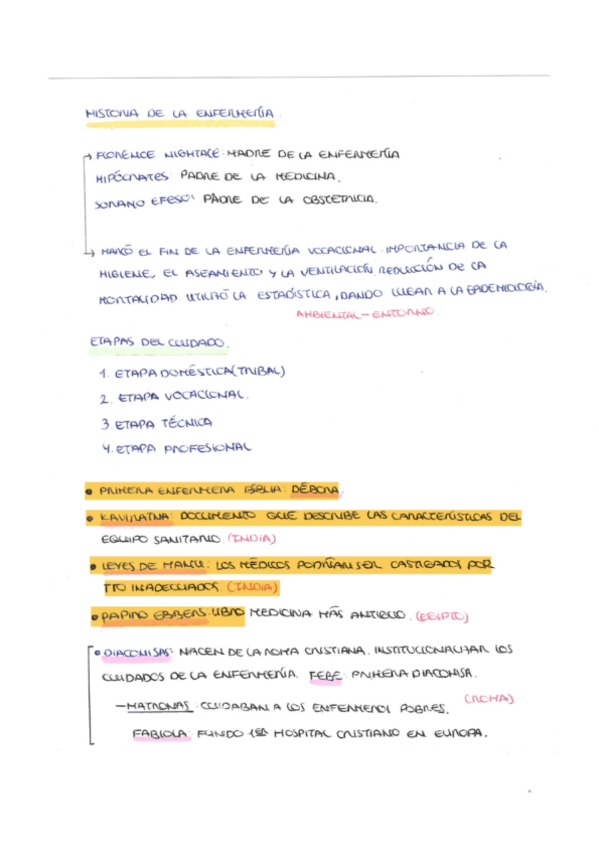 HISTORIA DE LA ENFERMERÍA.
FLORENCE NIGHTGALE: MADRE DE LA ENFERMERÍA
HIPÓCRATES: PADRE DE LA MEDICINA.
SORANO EFESO: PADRE DE LA OBSTETRICIA.
MARCÓ EL FIN DE LA ENFERMERÍA VOCACIONAL. IMPORTANCIA DE LA
HIGIENE, EL ASEAMIENTO Y LA VENTILACIÓN, REDUCCIÓN DE LA
MORTALIDAD. UTILIZÓ LA ESTADÍSTICA, DANDO LUGAR A LA EPIDEMIOLOGÍA.
AMBIENTAL - ENTORNO
ETAPAS DEL CUIDADO.
1. ETAPA DOMÉSTICA (TRIBAL)
2. ETAPA VOCACIONAL.
3 ETAPA TÉCNICA
4. ETAPA PROFESIONAL
• PRIMERA ENFERMERA BIBLIA: DÉBORA.
• KAVIRATNA: DOCUMENTO QUE DESCRIBE LAS CARACTERÍSTICAS DEL
EQUIPO SANITARIO. (INDIA)
• LEYES DE MANU: LOS MÉDICOS PODRÍAN SER CASTIGADOS POR
TTO INADECUADOS (INDIA)
• PAPIRO EBBERS: LIBRO MEDICINA MÁS ANTIGUO. (EGIPTO)
• DIACONISAS: NACEN DE LA ROMA CRISTIANA. INSTITUCIONALIZAR LOS
CUIDADOS DE LA ENFERMERÍA. FEBE: PRIMERA DIACONISA.
(ROMA)
— MATRONAS: CUIDABAN A LOS ENFERMOS POBRES.
FABIOLA: FUNDO 1ER HOSPITAL CRISTIANO EN EUROPA.